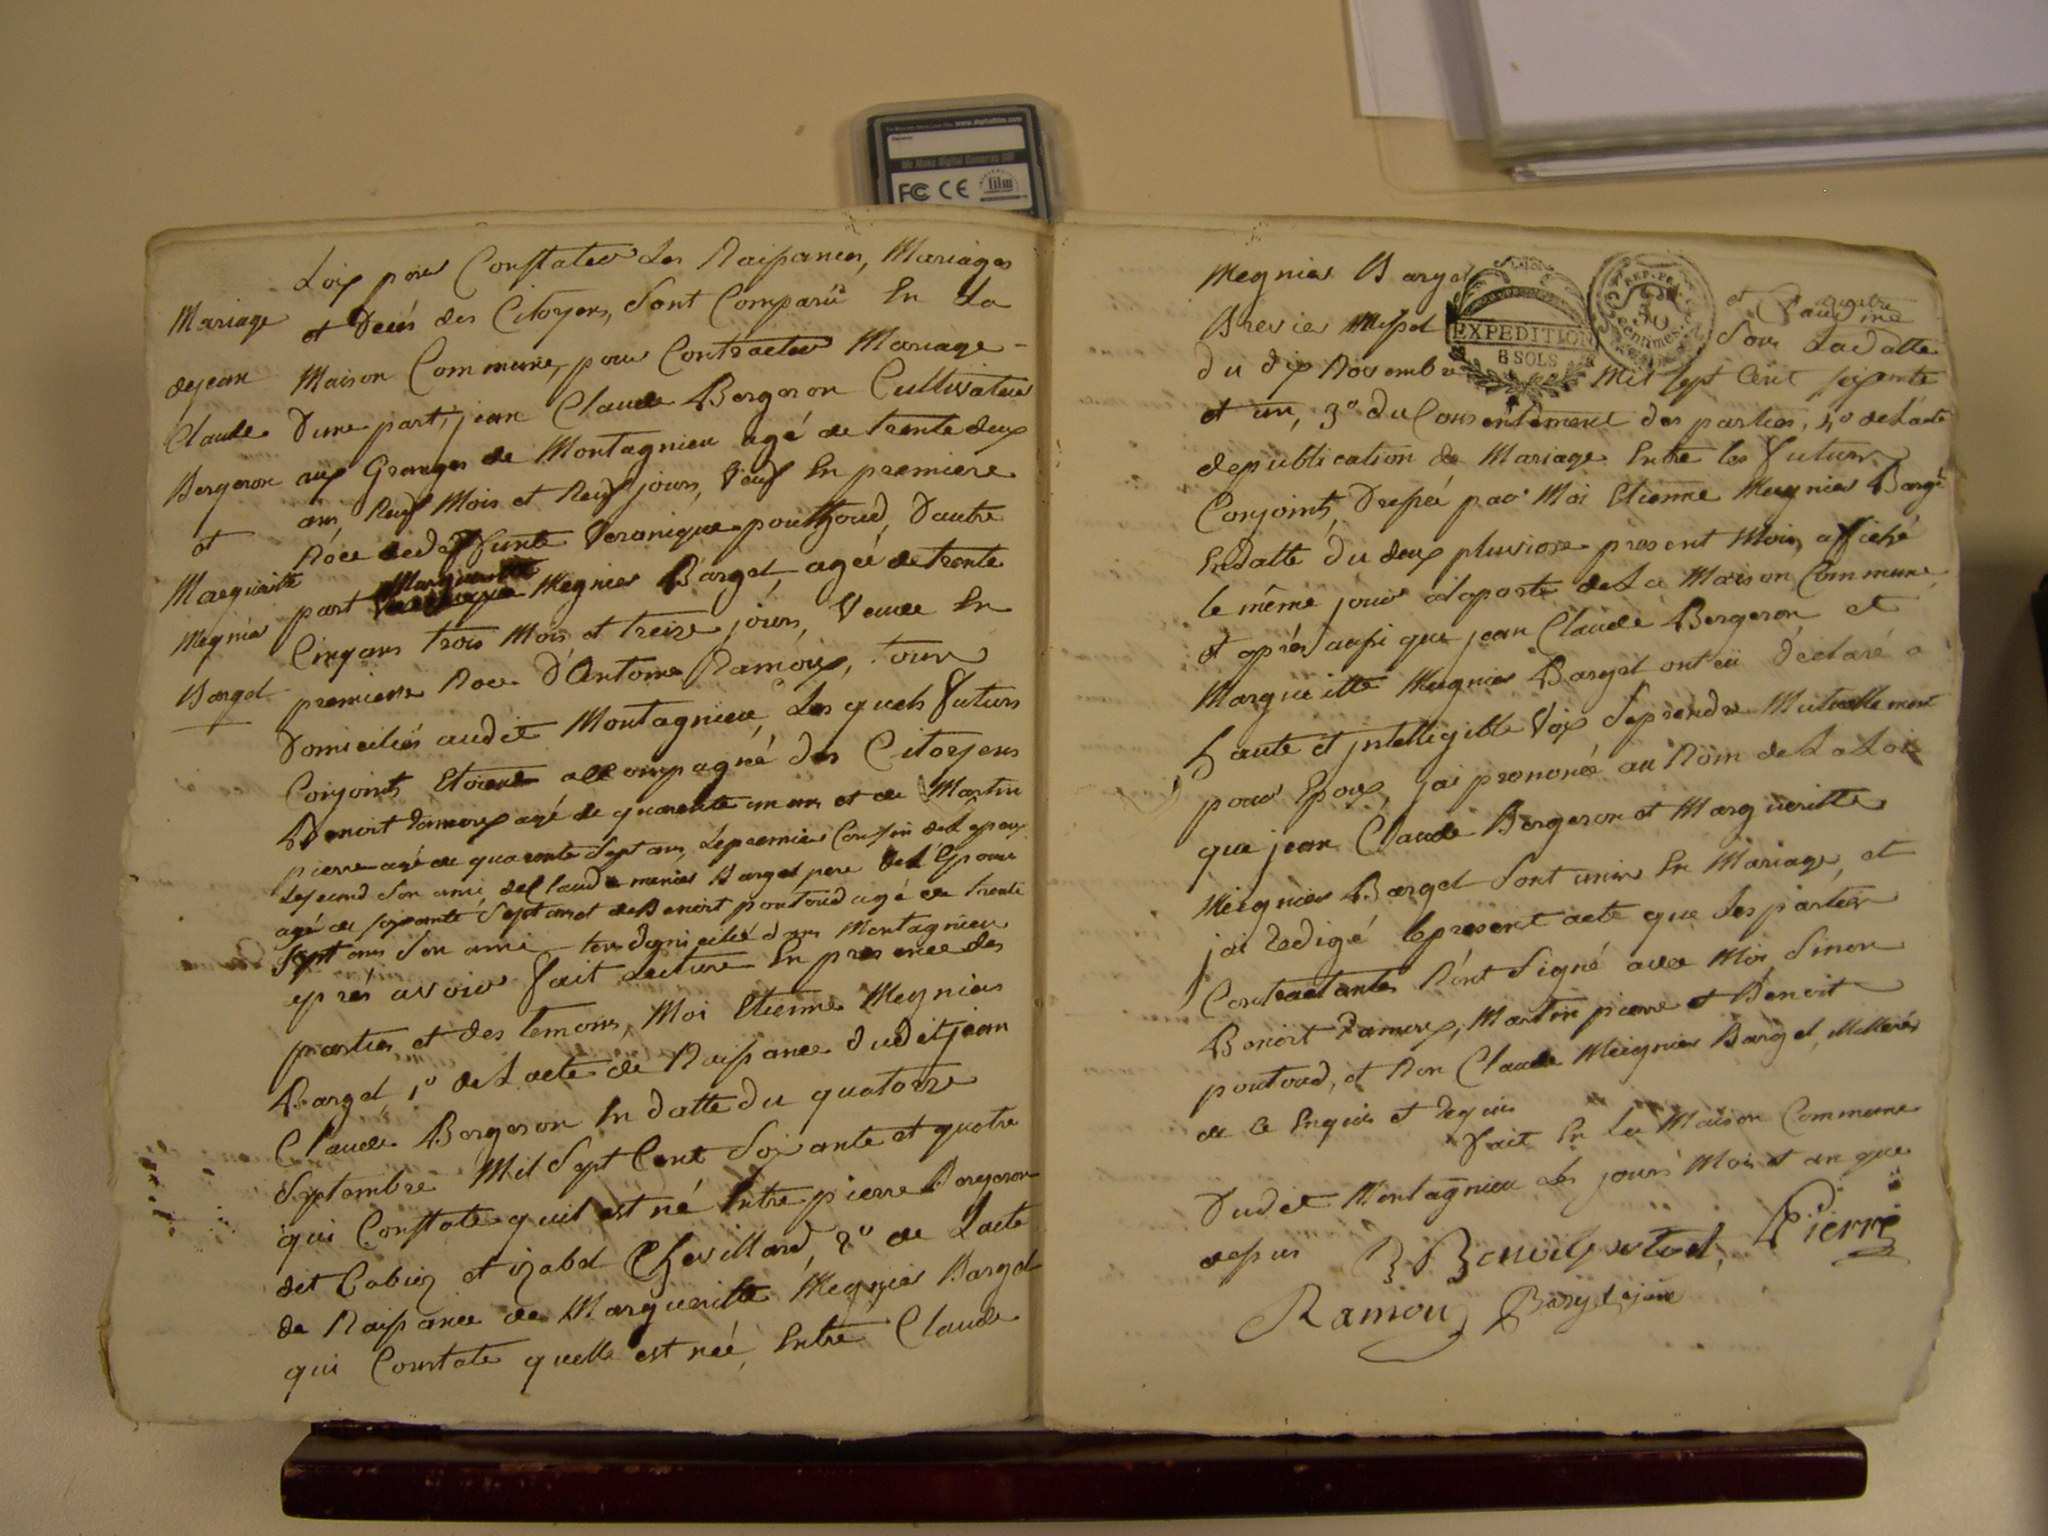 www.digitalfilm.com
We Make Digital Cameras GO!
FC CE film
Loix pour Constater les Naissances, Mariages
et Decés des Citoyens, sont Comparu En La
Maison Commune, pour Contracter Mariage
D'une part, jean Claude Bergeron Cultivateur
aux Granges de Montagnieu agé de trente deux
ans, Neuf Mois et Neuf jours, Veuf En premiere
Noce de deffunte Veronique pouthoud, D'autre
part Marguerite Megnier Bargel, agée de trente
Cinq ans trois Mois et treize jours, Veuve En
premiere Noce D'Antoine Ramoux, tous
Domiciliés audit Montagnieu, Les quels futurs
Conjoints Etoient accompagné des Citoyens
Benoit Ramoux agé de quarente un ans et de Martin
pierre agé de quarente Sept ans, Le premier Cousin de L'epoux
Le second son ami, de Claude menier Bargel pere de L'Epouse
agé de soixante Sept ans et de Benoit poutoud agé de trente
Sept ans Son ami tous domicilié dans Montagnieu
après avoir fait Lecture En presence des
parties et des temoins, Moi Etienne Megnier
Bargel, 1° de L'acte de Naissance dudit jean
Claude Bergeron En datte du quatorze
Septembre Mil Sept Cent Soixante et quatre
qui Constate qu'il est né Entre pierre Bergeron
dit Cabioz et izabel Chevillard, 2° de L'acte
de Naissance de Margueritte Megnier Bargel
qui Constate quelle est née, Entre Claude
Mariage
de jean
Claude
Bergeron
et
Marguerite
Megnier
Bargel
Megnier Bargel et Claudine
Brevier Sous La datte
du dix Novembre Mil Sept Cent soixante
et un, 3° du Consentement des parties, 4° de L'acte
de publication de Mariage Entre les futurs
Conjoints, Dressée par Moi Etienne Megnier Bargel
En datte du deux pluviose present Mois, affiché
le même jour à la porte de La Maison Commune,
et après aussi que jean Claude Bergeron, et
Margueritte Megnier Bargel ont eü déclaré a
haute et intelligible Voix Se prendre Mutuellement
pour Epoux, jai prononcé au Nom de La Loi
que jean Claude Bergeron et Margueritte
Meignier Bargel Sont unis En Mariage, et
jai redigé le present acte que Les parties
Contractantes N'ont Signé avec Moi Sinon
Benoit Ramoux, Martin pierre et Benoit
poutoud, et Non Claude Meignier Bargel, illitteré
de ce Enquis et requis
Fait En La Maison Commune
Dudit Montagnieu Les jours Mois et an que
dessus
Pierre
Ramoux
EXPEDITION
8 SOLS
REP. FRA.
50
centimes